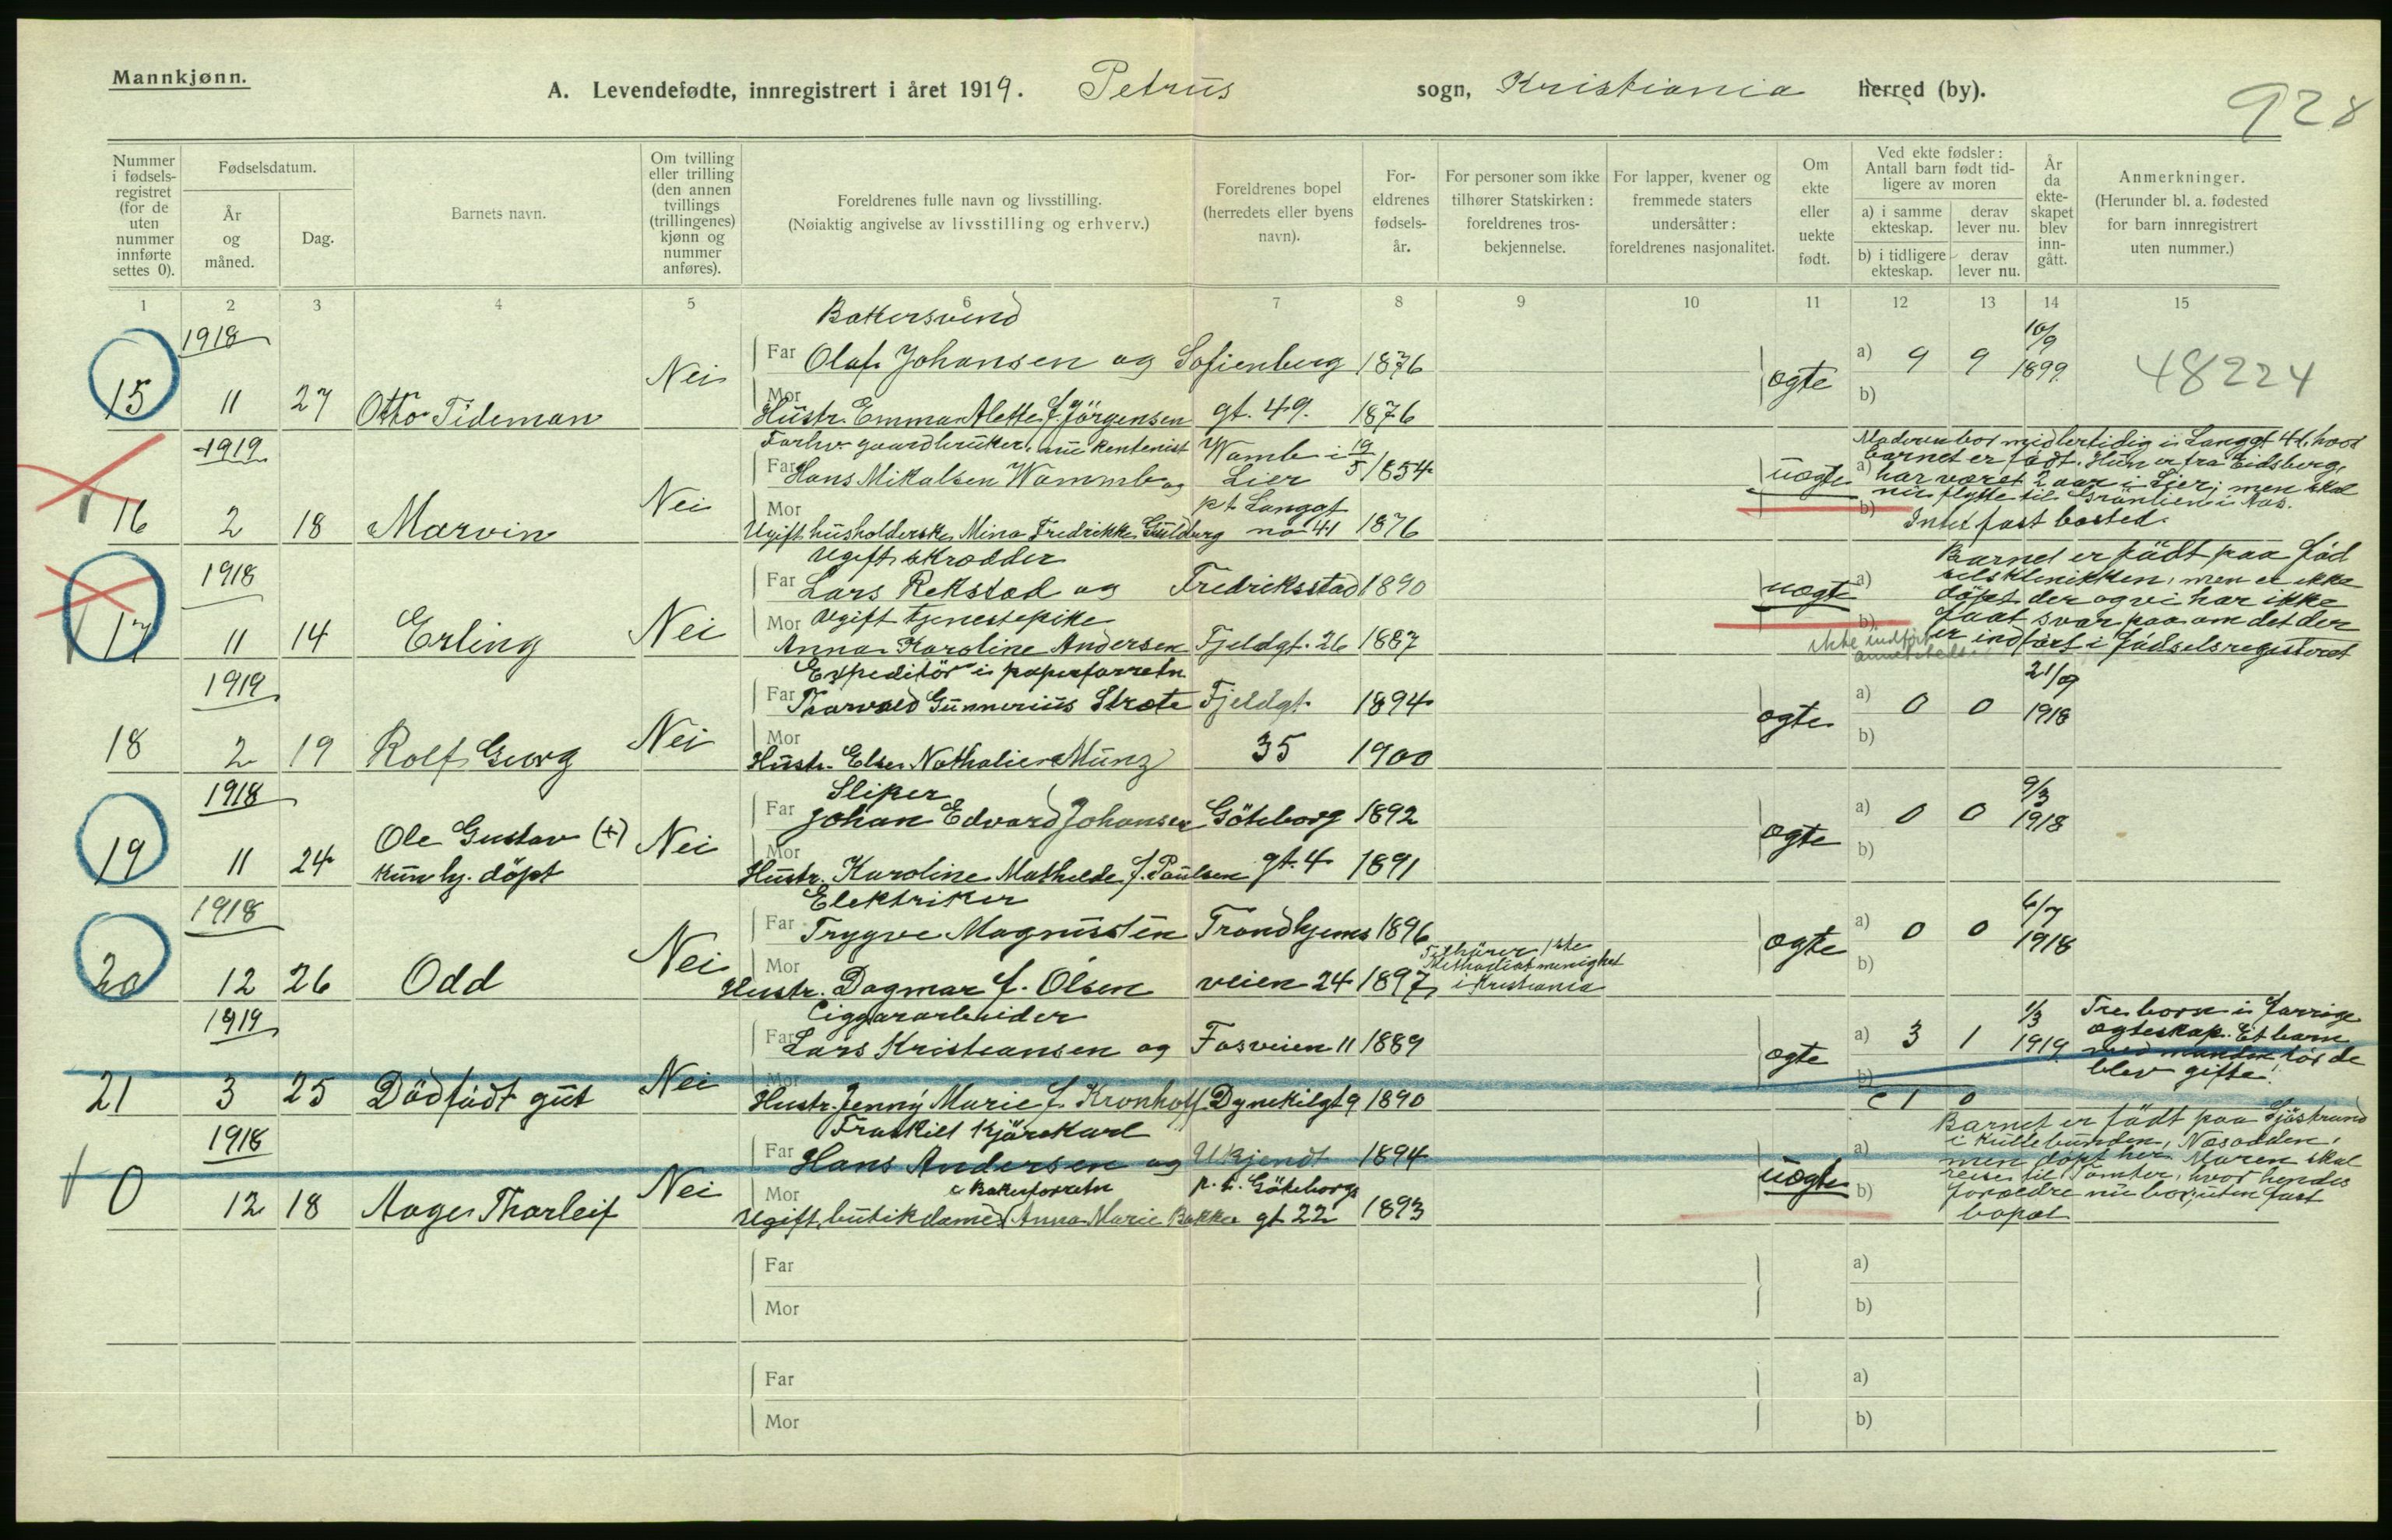 Mannkjønn.
A. Levendefødte, innregistrert i året 1919. Petrus sogn, Kristiania herred (by).
928
Nummer i fødsels-registret (for de uten nummer innførte settes 0).
Fødselsdatum.
År og måned.
Dag.
Barnets navn.
Om tvilling eller trilling (den annen tvillings (trillingenes) kjønn og nummer anføres).
Foreldrenes fulle navn og livsstilling.
(Nøiaktig angivelse av livsstilling og erhverv.)
Foreldrenes bopel (herredets eller byens navn).
For-eldrenes fødsels-år.
For personer som ikke tilhører Statskirken: foreldrenes tros-bekjennelse.
For lapper, kvener og fremmede staters undersåtter: foreldrenes nasjonalitet.
Om ekte eller uekte født.
Ved ekte fødsler: Antall barn født tid-ligere av moren
a) i samme ekteskap.
derav lever nu.
b) i tidligere ekteskap.
derav lever nu.
År da ekte-skapet blev inn-gått.
Anmerkninger.
(Herunder bl. a. fødested for barn innregistrert uten nummer.)
1 2 3 4 5 6 7 8 9 10 11 12 13 14 15
Bakersvend
1918
Far Olaf Johansen og Sofienberg 1876
a) 9 9 10/9 1899
48224
15 11 27 Otto Tideman Nei
Mor Hustr. Emma Alette f. Jörgensen gt. 49. 1876 ogte b)
1919
Forhv. gaardbruker, nu rentenist
Far Hans Mikalsen Wammb og Wamb i Lier 19/5 1854
16 2 18 Marvin Nei
Mor Ugift husholderske Mina Fredrikke Guldberg
pt Langgt no 41 1876
uogte a) b)
Moderen bor midlertidig i Langgt 41, hvor
barnet er födt. Hun er fra Eidsberg,
har været 2 aar i Lier; men skal
nu flytte til Gränlien i Aas.
Intet fast bosted.
1918
Ugift skrædder
Far Lars Rekstad og Fredriksstad 1890
17 11 14 Erling Nei
Mor Ugift tjenestepike
Anna Karoline Andersen Fjeldgt. 26 1887
uogte a) b)
Barnet er födt paa Föd
selsklinikken, men er ikke
döpt der og vi har ikke
faat svar paa om det der
er indfört i födselsregisteret
ikke indfört
1919
Expeditör i papirforretn.
Far Thorvald Gunnerius Strøte Fjeldgt. 1894
a) 0 0 21/9 1918
18 2 19 Rolf Georg Nei
Mor Hustr. Else Nathalie Münz 35 1900 ogte b)
1918
Sliper
Far Johan Edvard Johansen Göteborg 1892
a) 0 0 9/3 1918
19 11 24 Ole Gustav (+) Nei
kun hj. döpt
Mor Hustr. Karoline Mathilde f. Paulsen gt. 4 1891 ogte b)
1918
Elektriker
Far Trygve Magnussen Trondhjems 1896
a) 0 0 6/7 1918
20 12 26 Odd Nei
Mor Hustr. Dagmar f. Olsen veien 24 1897
Tilhörer 1ste
Methodistmenighet
i Kristiania
ogte b)
1919
Ciggararbeider
Far Lars Kristiansen og Fosveien 11 1889
a) 3 1 1/3 1919
21 3 25 Dödfödt gut Nei
Mor Hustr. Jenny Marie f. Kronhoff Dynekilgt 9 1890
ogte b) c 1 0
Tre barn i forrige
ogteskap. Et barn
med manden för de
blev gifte!
1918
Fraskilt kjörekarl
Far Hans Andersen og Ukjendt 1894
0 12 18 Aage Thorleif Nei
i Bakerforretn
Mor Ugift butikdame Anna Marie Bakke
p. t. Göteborgs gt 22 1893
uogte a) b)
Barnet er födt paa Sjöstrand
i Kullebunden, Næsodden,
men döpt her. Moren skal
reise til Tomter, hvor hendes
foreldre nu bor, uten fast
bopæl
Far
Mor
a)
b)
Far
Mor
a)
b)